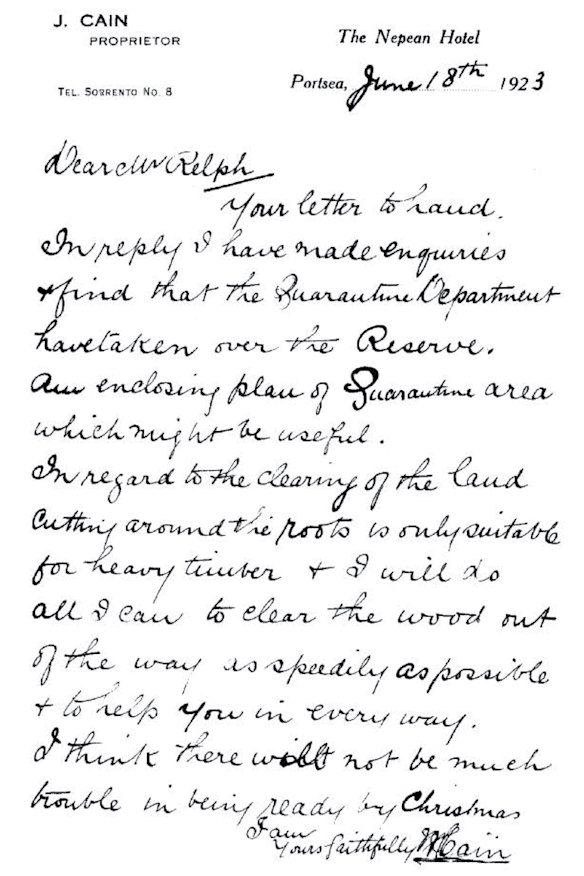 J. CAIN
PROPRIETOR
TEL. SORRENTO No. 8
The Nepean Hotel
Portsea, June 18th 1923
Dear Mr Relph
Your letter to hand.
In reply I have made enquiries
& find that the Quarantine Department
have taken over the Reserve.
Am enclosing plan of Quarantine area
which might be useful.
In regard to the clearing of the land
cutting around the roots is only suitable
for heavy timber & I will do
all I can to clear the wood out
of the way as speedily as possible
& to help you in every way.
I think there will not be much
trouble in being ready by Christmas
I am
Yours faithfully Cain